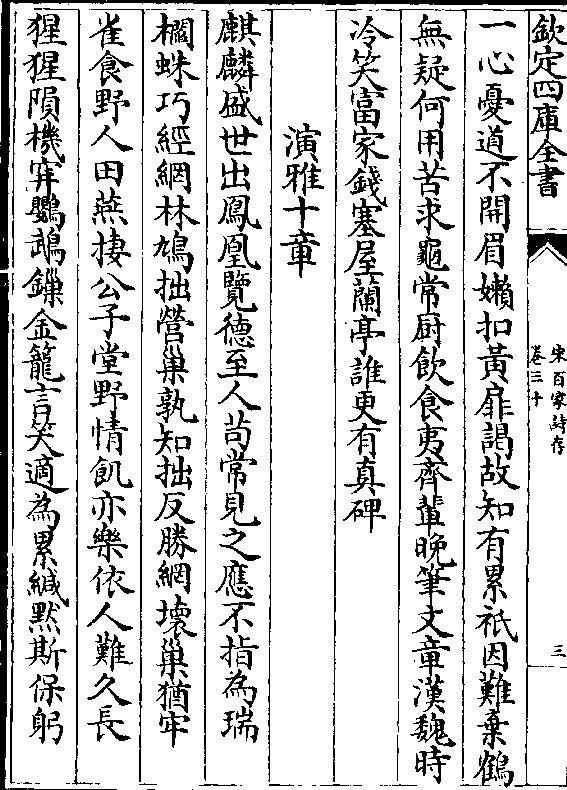 欽定四庫全書
宋百家詩存
卷三十
三
一心憂道不開眉嬾扣黃扉謁故知有累祇因難棄鶴
無疑何用苦求龜常厨飲食夷齊輩晚筆文章漢魏時
冷笑富家錢塞屋蘭亭誰更有真碑
演雅十章
麒麟盛世出鳳凰覽德至人茍常見之應不指為瑞
櫩蛛巧經網林鳩拙營巢孰知拙反勝網壞巢猶牢
雀食野人田燕棲公子堂野情飢亦樂依人難久長
猩猩隕機穽鸚鵡鏁金籠言笑適為累緘默斯保躬